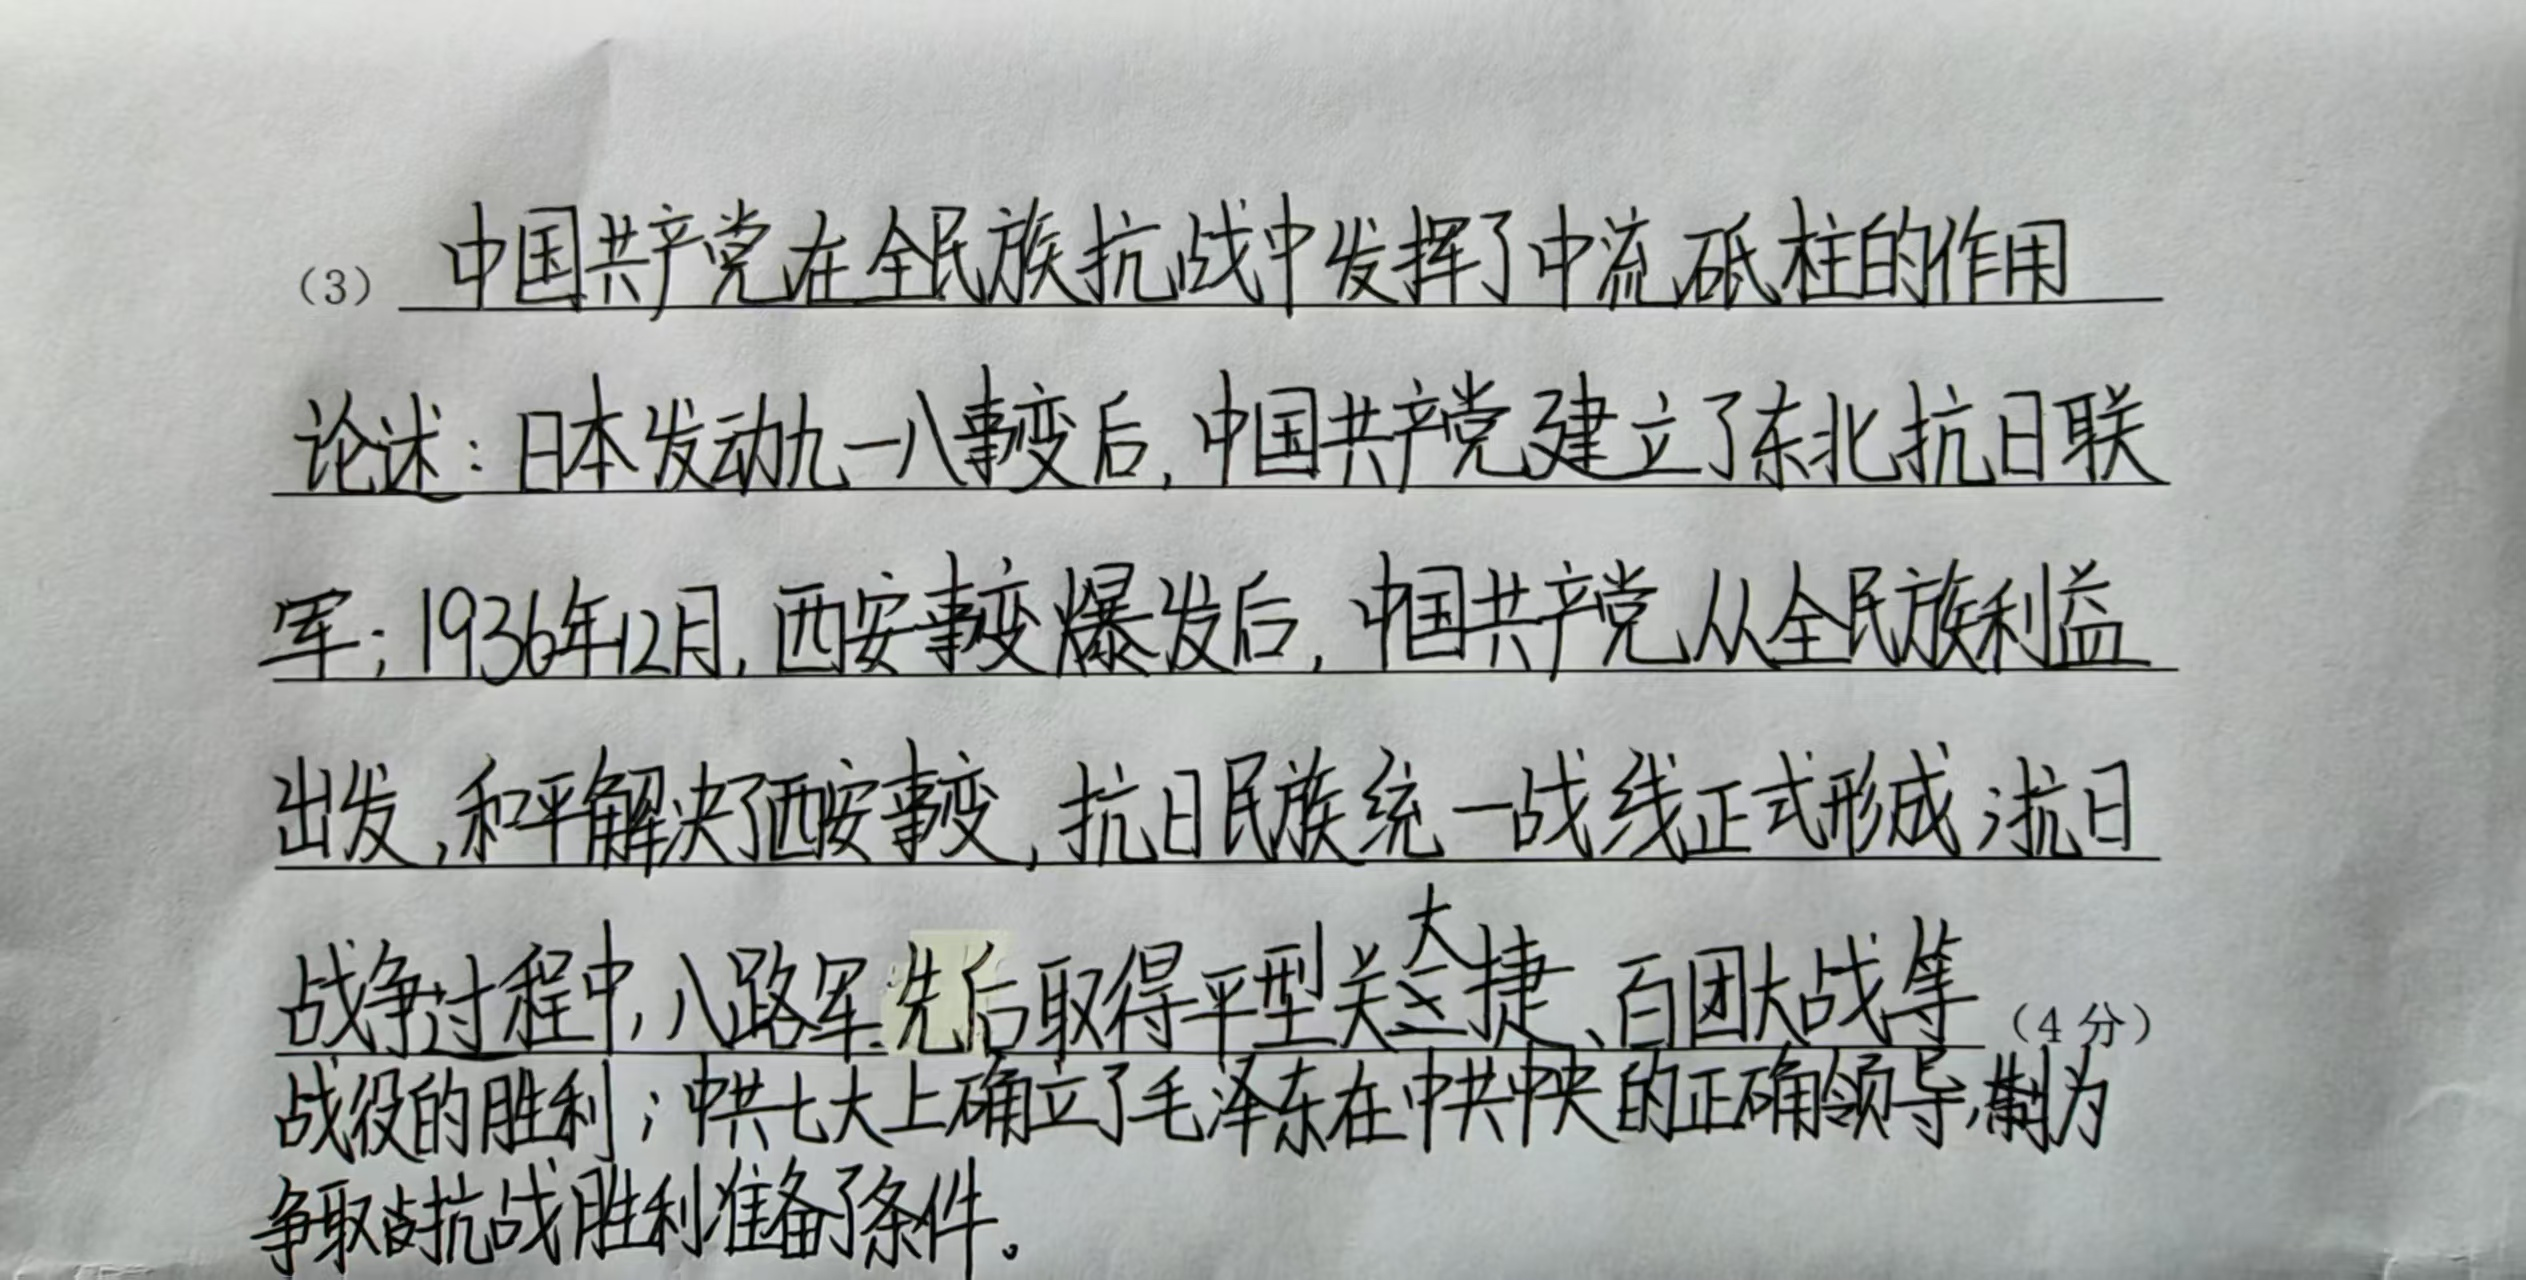 （3） 中国共产党在全民族抗战中发挥了中流砥柱的作用
论述：日本发动九一八事变后，中国共产党建立了东北抗日联
军；1936年12月，西安事变爆发后，中国共产党从全民族利益
出发，和平解决了西安事变，抗日民族统一战线正式形成；抗日
战争过程中，八路军先后取得平型关大捷、百团大战等（4分）
战役的胜利；中共七大上确立了毛泽东在中共中央的正确领导，为
争取抗战胜利准备了条件。